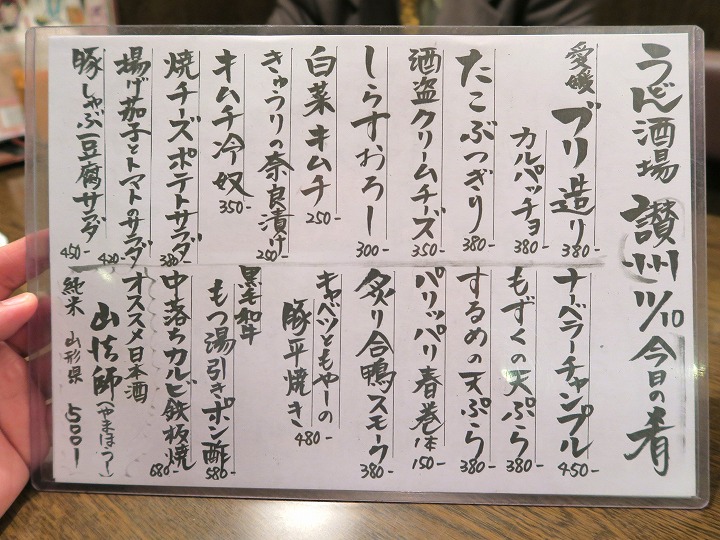 うどん酒場 讃州 11/10 今日の肴
愛媛 ブリ造り 380-
カルパッチョ 380-
たこぶつぎり 380-
酒盗クリームチーズ 350-
しらすおろし 300-
白菜キムチ 250-
きゅうりの奈良漬け 250-
キムチ冷奴 350-
焼チーズポテトサラダ 380-
揚げ茄子とトマトのサラダ 420-
豚しゃぶ豆腐サラダ 450-
ナーベラーチャンプル 450-
もずくの天ぷら 380-
するめの天ぷら 380-
パリッパリ春巻 1本 150-
炙り合鴨スモーク 380-
キャベツともやしの
豚平焼き 480-
黒毛和牛
もつ湯引きポン酢 580-
中落ちカルビ鉄板焼 680-
オススメ日本酒
山法師(やまほうし)
純米 山形県 500-